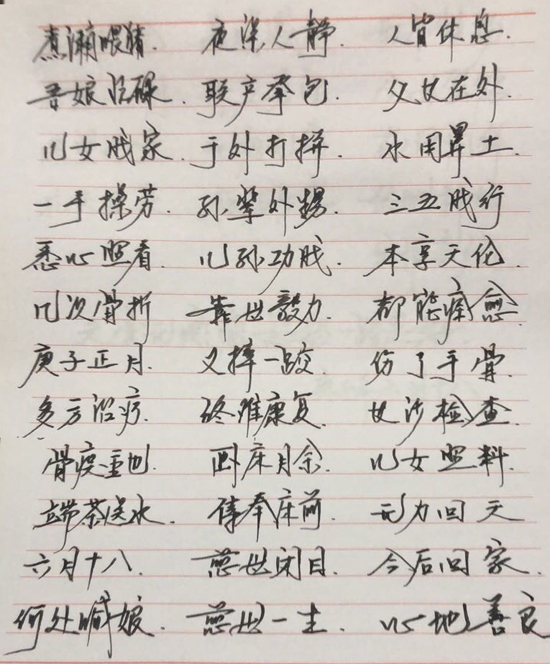 煮潲喂猪. 夜深人静. 人皆休息.
吾娘忙碌. 联产承包. 父女在外.
儿女成家. 于外打拼. 水田旱土.
一手操劳. 孙辈外甥. 三五成行
悉心照看. 儿孙功成. 本享天伦.
几次骨折 靠母毅力. 都能痊愈.
庚子正月. 又摔一跤. 伤了手骨.
多方治疗. 终难康复. 女沙检查.
骨疫重也. 卧床月余. 儿女照料.
端茶送水. 侍奉床前. 无力回天
六月十八. 慈母闭目. 今后回家.
何处喊娘. 慈母一生. 心地善良